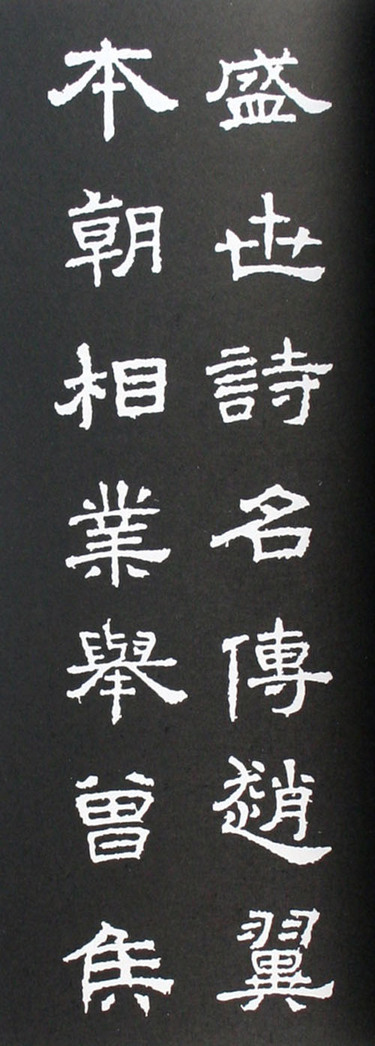 盛世詩名傳趙翼
本朝相業舉曾侯